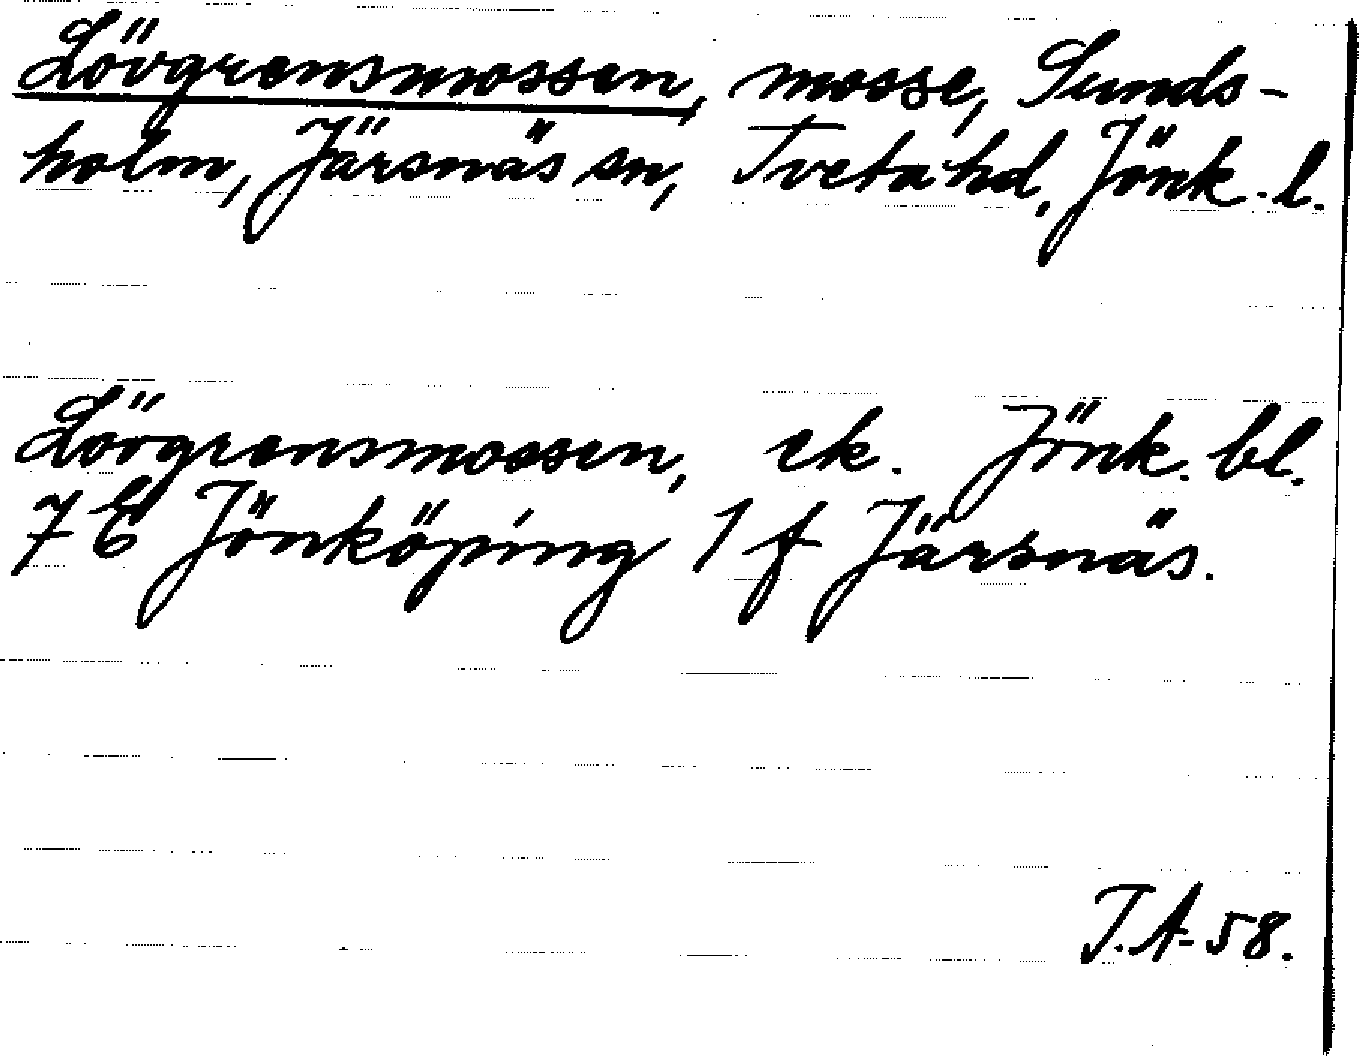 Lövgrensmossen, mosse, Sunds-
holm, Järsnäs sn, Tveta hd, Jönk. l.
Lövgrensmossen, ek. Jönk. bl.
7 E Jönköping 1 f Järsnäs.
T.A. 58.